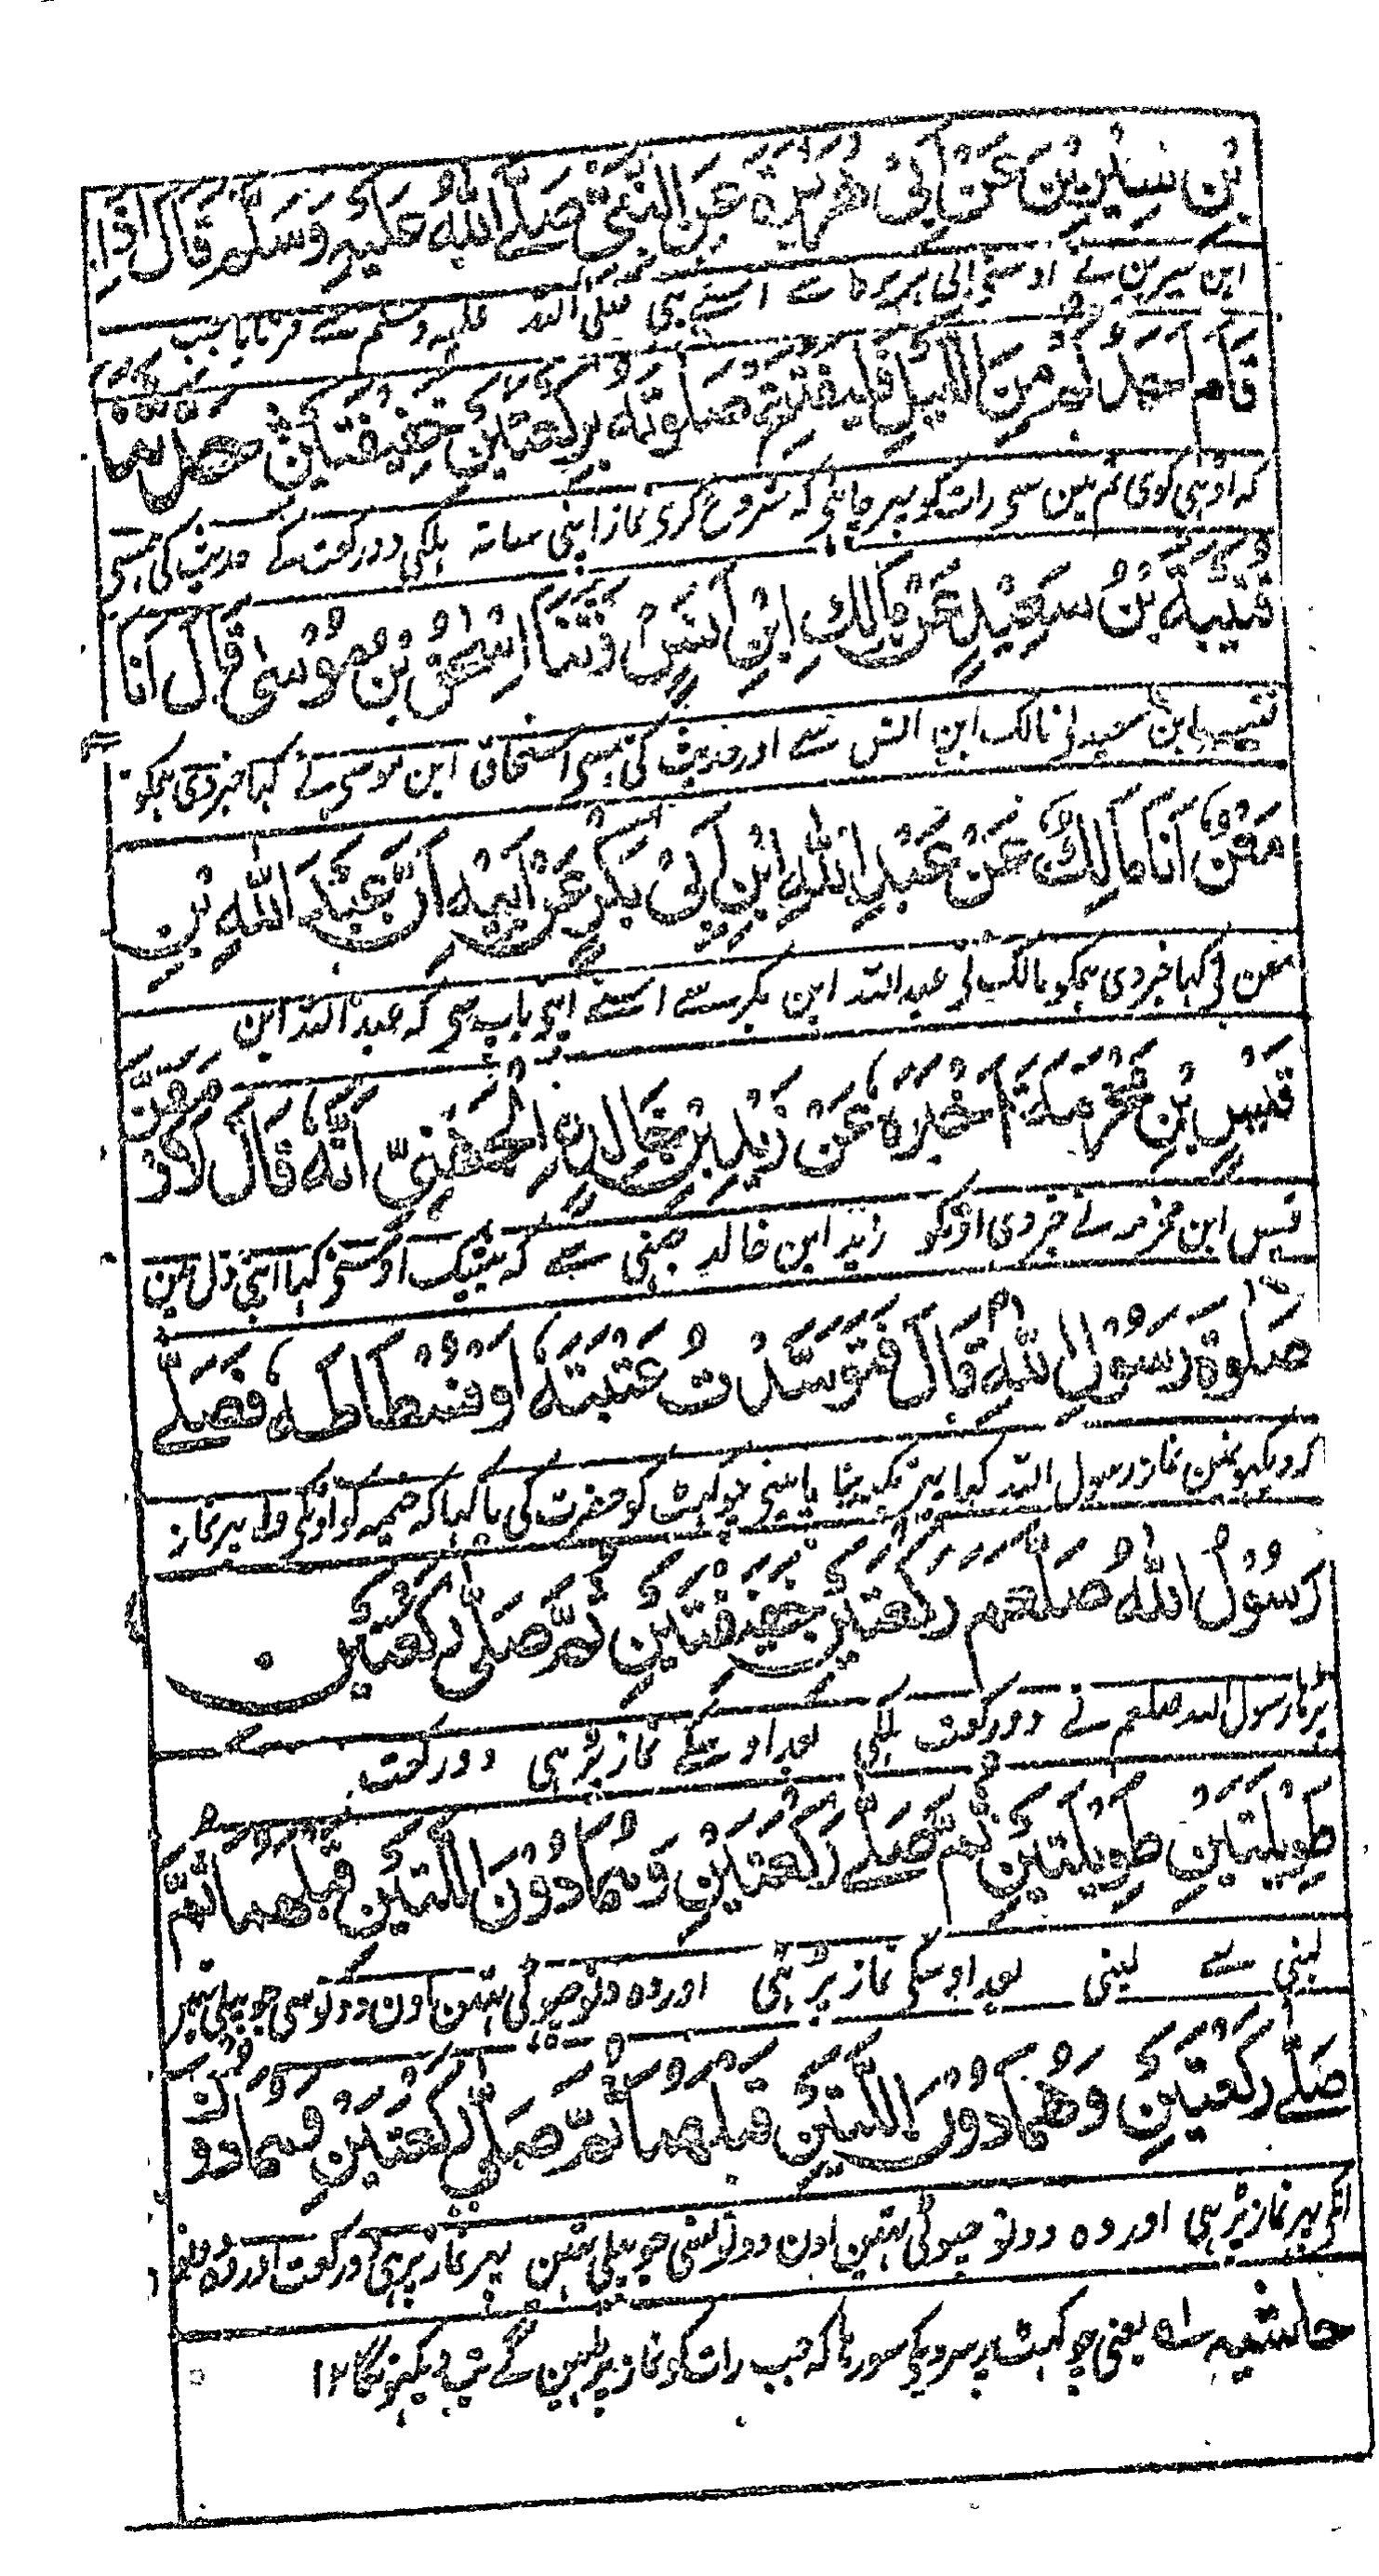 بْنِ سِيْرِيْنَ عَنْ اَبِیْ هُرَيْرَةَ عَنِ النَّبِیِّ صَلَّے اللّٰهُ عَلَيْهِ وَسَلَّمَ قَالَ اِذَا
ابن سیرین نے اوسنے ابی ہریرہ سے اسنے نبی صلی اللہ علیہ وسلم سے فرمایا جب
قَامَ اَحَدُكُمْ مِنَ اللَّيْلِ فَلْيَفْتَتِحْ صَلٰوتَهٗ بِرَكْعَتَيْنِ خَفِيْفَتَيْنِ حَدَّثَنَا
کہ اوٹہی کوی تم مین سی رات کو پہر چاہئی کہ شروع کری نماز اپنی ساتہ ہلکی دو رکعت کے حدیث کی ہمسی
قُتَيْبَةُ بْنُ سَعِيْدٍ عَنْ مَالِكِ ابْنِ اَنَسٍ وَثَنَا اِسْحٰقُ بْنُ مُوْسٰی قَالَ اَنَا
قتیبہ ابن سعید نے مالک ابن انس سے اور حدیث کی ہمسی اسحاق ابن موسی نے کہا خبر دی ہمکو
مَعْنٌ اَنَا مَالِكٌ عَنْ عَبْدِ اللّٰهِ ابْنِ اَبِیْ بَكْرٍ عَنْ اَبِيْهِ اَنَّ عَبْدَ اللّٰهِ بْنِ
معن نی کہا خبر دی ہمکو مالک نی عبد اللہ ابن بکر سے اسنے اپنی باپ سی کہ عبد اللہ ابن
قَيْسِ بْنِ مَخْرَمَةَ اَخْبَرَهٗ عَنْ زَيْدِ بْنِ خَالِدٍ الْجُهَنِیِّ اَنَّهٗ قَالَ لَاَرْمُقَنَّ
قیس ابن مخرمہ نے خبر دی اوسکو زاید ابن خالد جہنی سے کہ بیشک اوسنی کہا اپنی دل مین
صَلٰوةَ رَسُوْلِ اللّٰهِ قَالَ فَتَوَسَّدْتُ عَتَبَتَهٗ اَوْ فُسْطَاطَهٗ فَصَلَّے
کہ دیکہونگا مین نماز رسول اللہ کہا پہر تکیہ بنایا مینی چوکہٹ کو حضرت کی یا کہا کہ خیمہ کو اونکی ولہ پہر نماز
رَسُوْلُ اللّٰهِ صلعم رَكْعَتَيْنِ خَفِيْفَتَيْنِ ثُمَّ صَلّٰی رَكْعَتَيْنِ
پڑہا رسول اللہ صلعم نے دو رکعت ہلکی بعد اوسکے نماز پڑہی دو رکعت
طَوِيْلَتَيْنِ طَوِيْلَتَيْنِ ثُمَّ صَلّٰے رَكْعَتَيْنِ وَهُمَا دُوْنَ اللَّتَيْنِ قَبْلَهُمَا ثُمَّ
لبنی سے لبنی بعد اوسکی نماز پڑہی اور وہ دونو چہوٹی تہین اون دونوسی جو پہلی تہین
صَلّٰے رَكْعَتَيْنِ وَهُمَا دُوْنَ اللَّتَيْنِ قَبْلَهُمَا ثُمَّ صَلّٰی رَكْعَتَيْنِ وَهُمَا دُوْنَ
انکی پہر نماز پڑہی اور وہ دونو چہوٹی تہین اون دونوسی جو پہلی تہین پہر نماز پڑہی دو رکعت اور وہ دونو
حاشیہ ۱ یعنی چوکہٹ پر سر دیکی سو رہا کہ جب رات کو نماز پڑہین گے تب دیکہونگا ۱۲